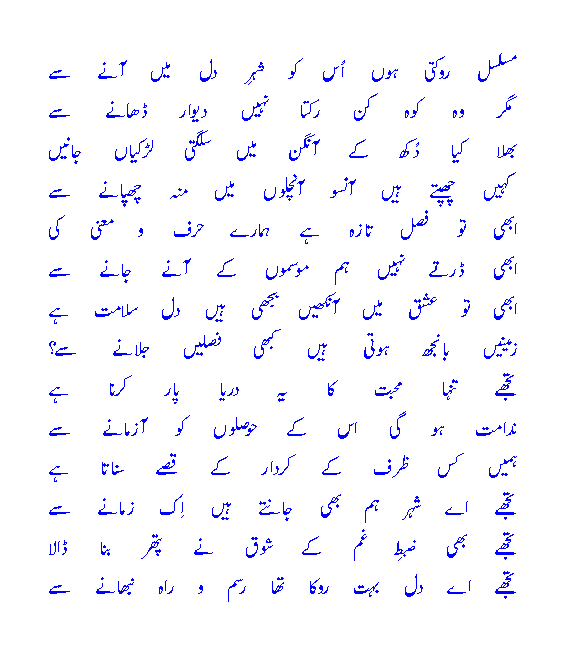 مسلسل روکتی ہوں اُس کو شہرِ دل میں آنے سے
مگر وہ کوہ کن رکتا نہیں دیوار ڈھانے سے
بھلا کیا دُکھ کے آنگن میں سلگتی لڑکیاں جانیں
کہیں چھپتے ہیں آنسو آنچلوں میں منہ چھپانے سے
ابھی تو فصل تازہ ہے ہمارے حرف و معنی کی
ابھی ڈرتے نہیں ہم موسموں کے آنے جانے سے
ابھی تو عشق میں آنکھیں بجھی ہیں دل سلامت ہے
زمینیں بانجھ ہوتی ہیں کبھی فصلیں جلانے سے؟
تجھے تنہا محبت کا یہ دریا پار کرنا ہے
ندامت ہو گی اس کے حوصلوں کو آزمانے سے
ہمیں کس ظرف کے کردار کے قصے سناتا ہے
تجھے اے شہر ہم بھی جانتے ہیں اِک زمانے سے
تجھے بھی ضبطِ غم کے شوق نے پتھر بنا ڈالا
تجھے اے دل بہت روکا تھا رسم و راہ نبھانے سے